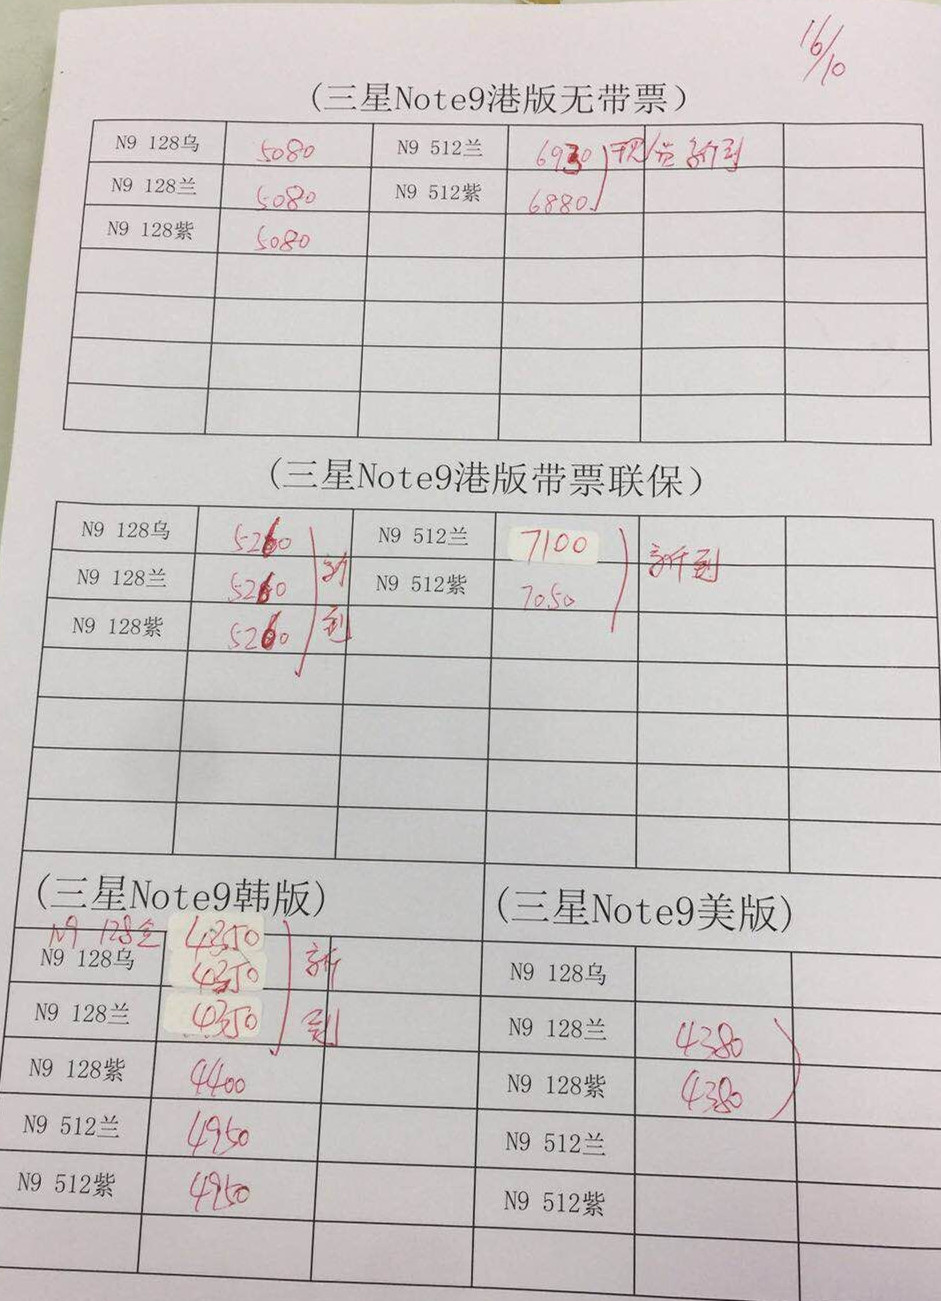 16/10
(三星Note9港版无带票)
N9 128乌 5080 N9 512兰 6930 新到
N9 128兰 5080 N9 512紫 6880
N9 128紫 5080
(三星Note9港版带票联保)
N9 128乌 5260 N9 512兰 7100
N9 128兰 5260 新 N9 512紫 7050 新到
N9 128紫 5260 到
(三星Note9韩版)
N9 128金 4350
N9 128乌 4350 新
N9 128兰 4350 到
N9 128紫 4400
N9 512兰 4950
N9 512紫 4950
(三星Note9美版)
N9 128乌
N9 128兰 4380
N9 128紫 4380
N9 512兰
N9 512紫